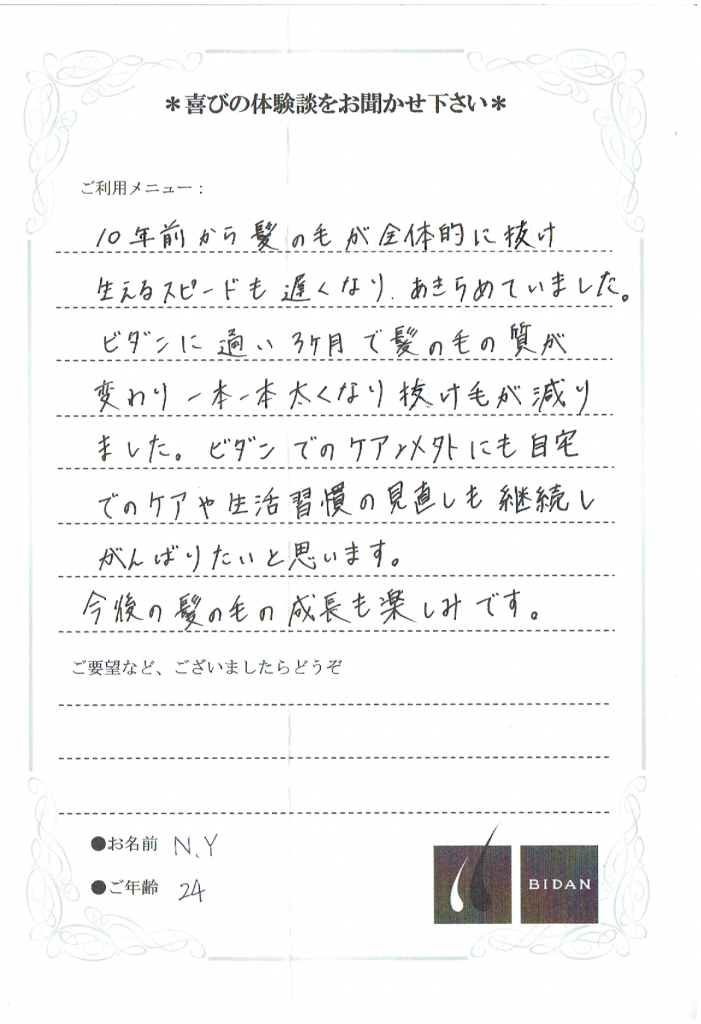 ＊喜びの体験談をお聞かせ下さい＊
ご利用メニュー：
10年前から髪の毛が全体的に抜け
生えるスピードも遅くなり、あきらめていました。
ビダンに通い3ヶ月で髪の毛の質が
変わり一本一本太くなり抜け毛が減り
ました。ビダンでのケア以外にも自宅
でのケアや生活習慣の見直しも継続し
がんばりたいと思います。
今後の髪の毛の成長も楽しみです。
ご要望など、ございましたらどうぞ
●お名前 N.Y
●ご年齢 24
BIDAN